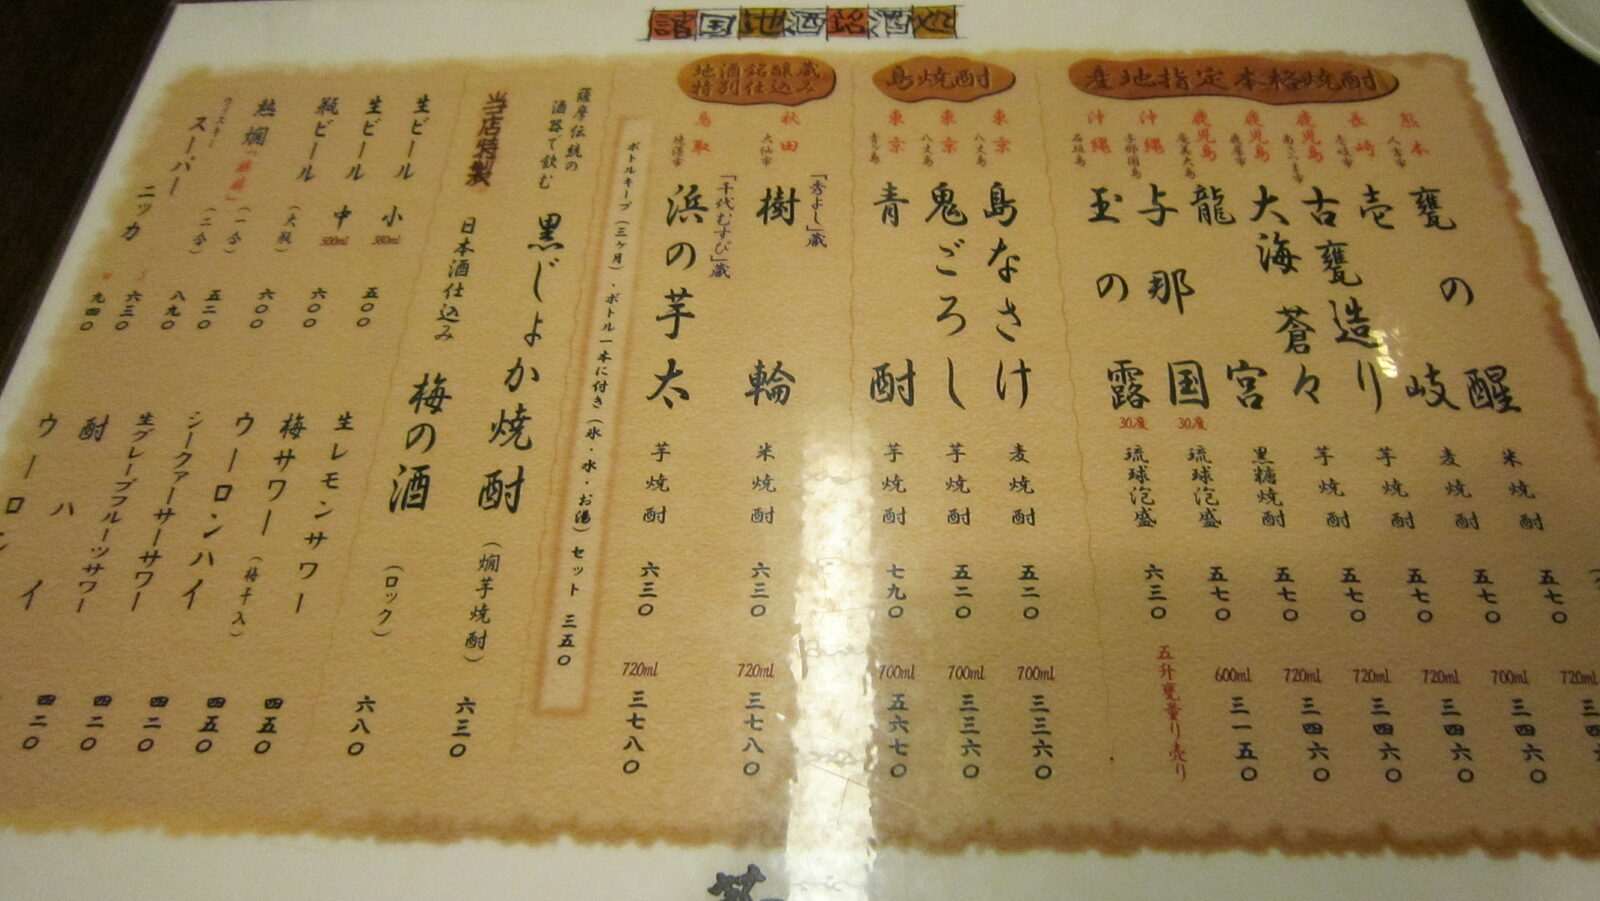 諸国地酒銘酒処
産地指定本格焼酎
熊本 人吉市
甕の醒 米焼酎 五七〇 720ml
長崎 壱岐市
壱岐 麦焼酎 五七〇 700ml 三四六〇
鹿児島 南さつま市
古甕造り 芋焼酎 五七〇 720ml 三四六〇
鹿児島
大海蒼々 芋焼酎 五七〇 720ml 三四六〇
鹿児島 奄美大島
龍宮 黒糖焼酎 五七〇 720ml 三四六〇
沖縄 与那国島
与那国 30度 琉球泡盛 五七〇 600ml 三一五〇
沖縄 石垣島
玉の露 30度 琉球泡盛 六三〇 五升甕量り売り
島焼酎
東京 八丈島
島なさけ 麦焼酎 五二〇 700ml 三三六〇
東京 八丈島
鬼ごろし 芋焼酎 五二〇 700ml 三三六〇
東京 青ヶ島
青酎 芋焼酎 七九〇 700ml 五六七〇
地酒銘醸蔵
特別仕込み
秋田 大仙市
「秀よし」蔵
樹輪 米焼酎 六三〇 720ml 三七八〇
鳥取 境港市
「千代むすび」蔵
浜の芋太 芋焼酎 六三〇 720ml 三七八〇
ボトルキープ（三ヶ月）・ボトル一本に付き（氷・水・お湯）セット 三五〇
薩摩伝統の
酒器で飲む
黒じょか焼酎（燗芋焼酎） 六三〇
当店特製
日本酒仕込み
梅の酒（ロック） 六八〇
生ビール 小 380ml 五〇〇
生ビール 中 500ml 六〇〇
瓶ビール（大瓶） 六〇〇
熱燗（一合） 五二〇
（二合） 八九〇
ウィスキー
スーパーニッカ S 六三〇
W 九四〇
生レモンサワー 四五〇
梅サワー（梅干入） 四五〇
ウーロンハイ 四二〇
シークァーサーサワー 四二〇
生グレープフルーツサワー 四二〇
酎ハイ
ウーロン